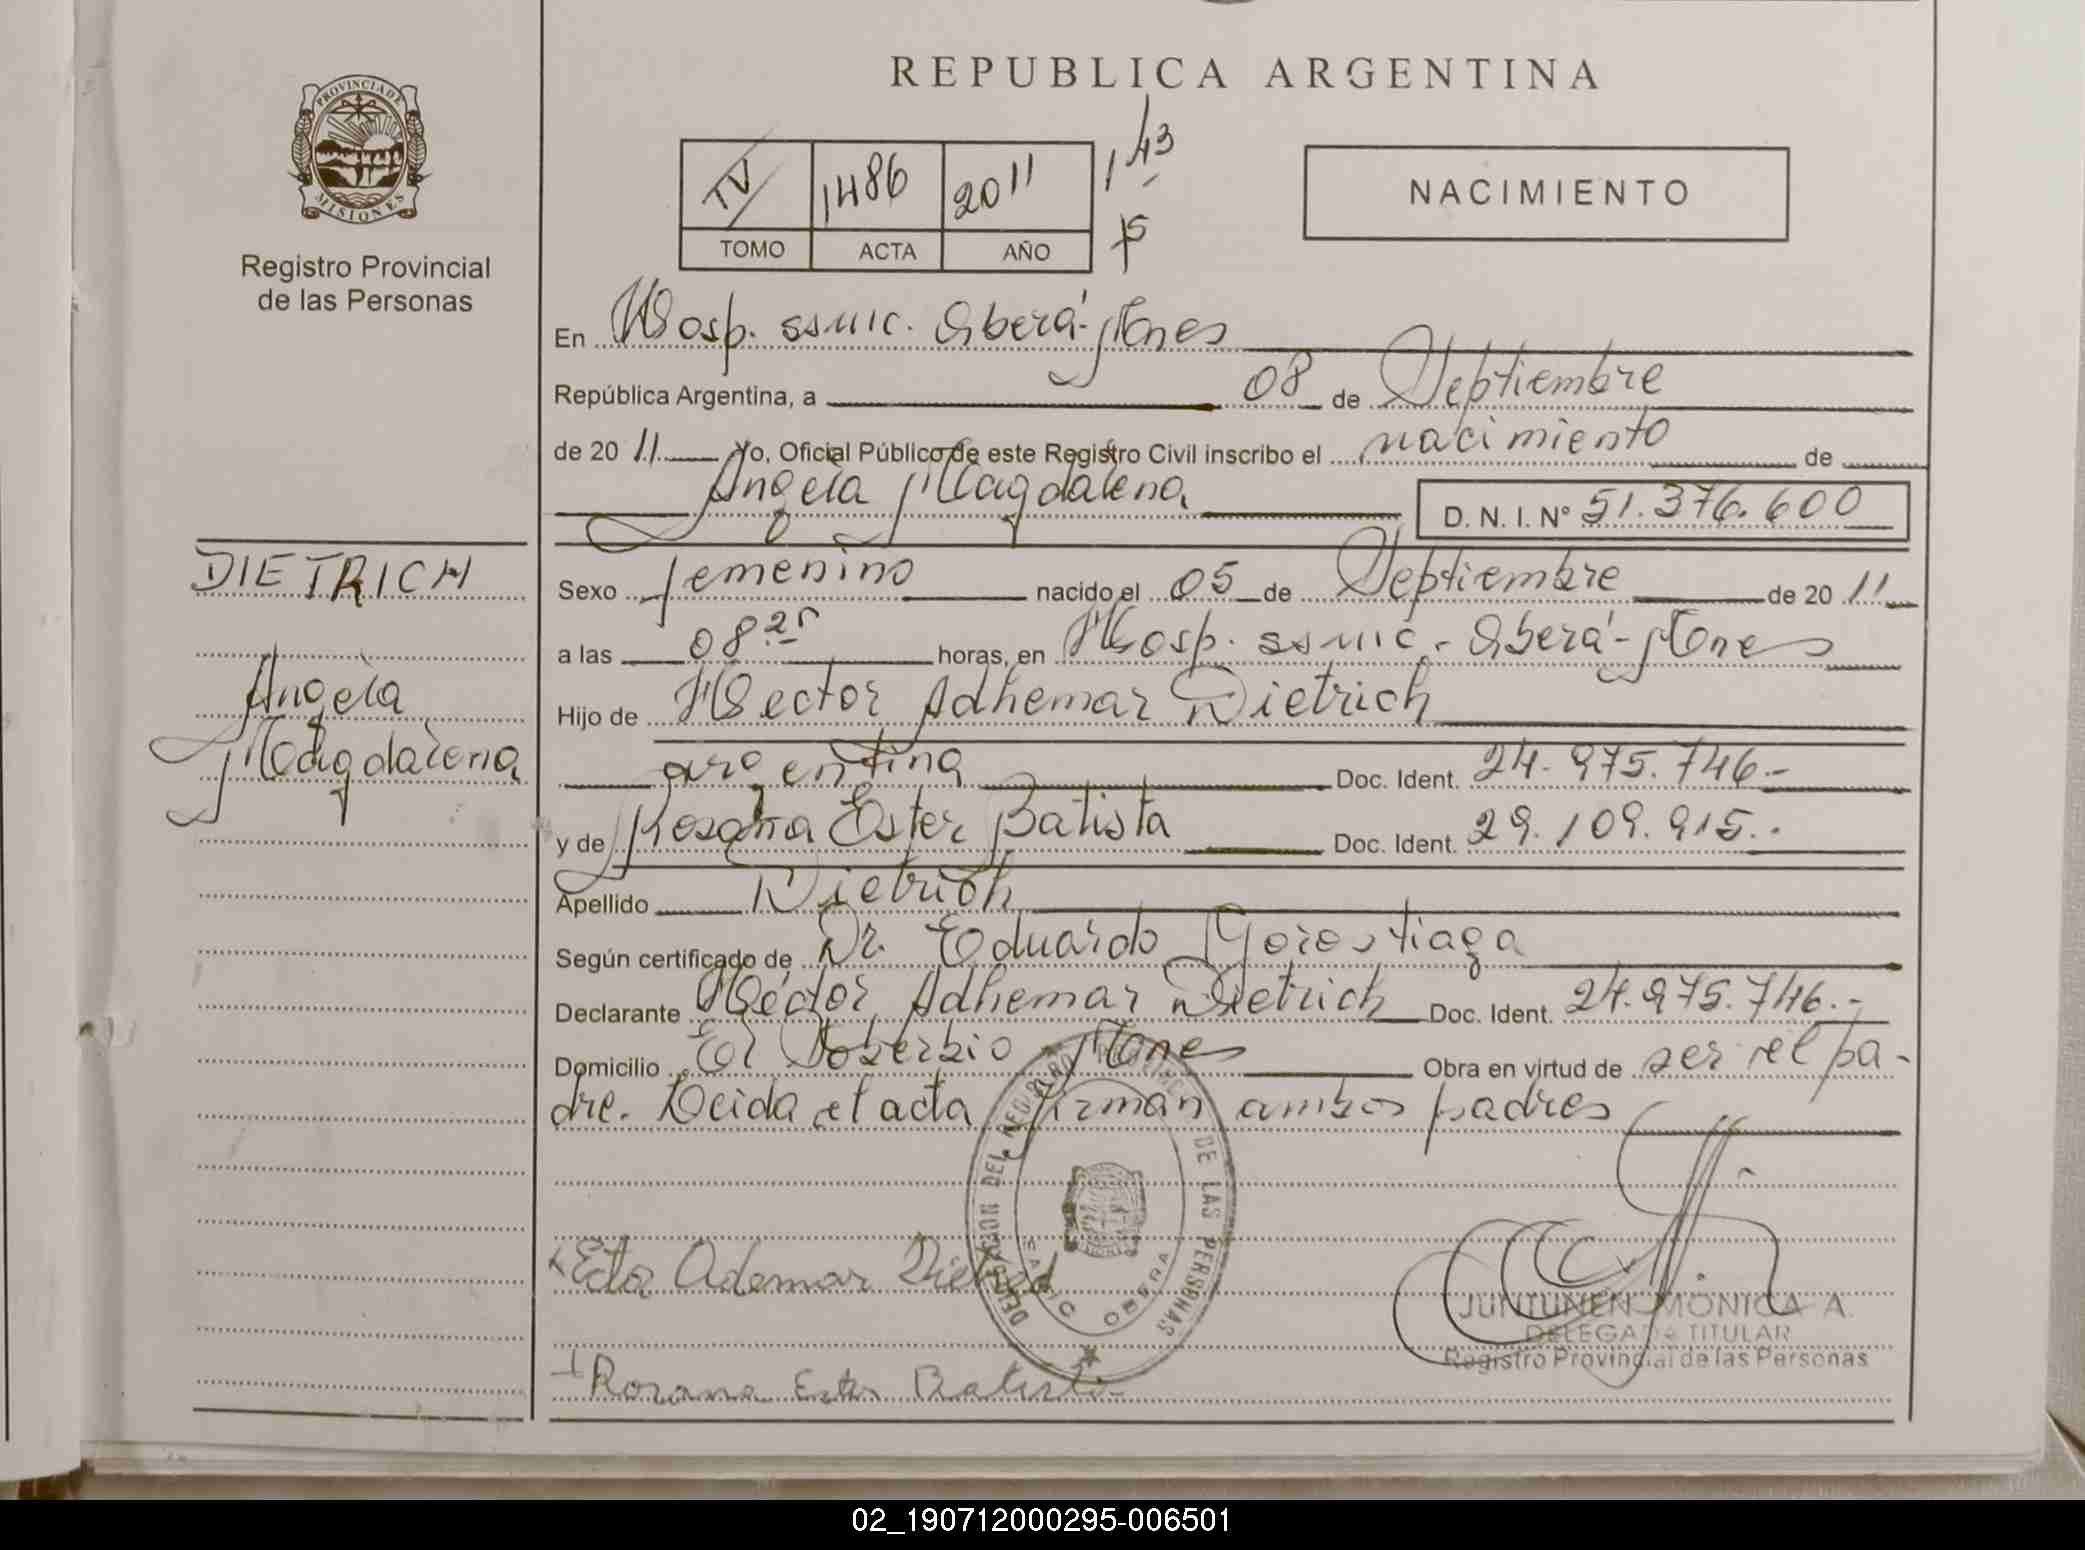 REPUBLICA ARGENTINA
PROVINCIA DE MISIONES
Registro Provincial
de las Personas
TV 1486 2011
TOMO ACTA AÑO
NACIMIENTO
En Hosp. ssmic. Oberá-Mones
República Argentina, a 08 de Septiembre
de 20 11 Yo, Oficial Público de este Registro Civil inscribo el nacimiento de
Angela Magdalena D. N. I. Nº 51.376.600
DIETRICH
Angela
Magdalena
Sexo femenino nacido el 05 de Septiembre de 20 11
a las 08 25 horas, en Hosp. ssmic.- Oberá-Mones
Hijo de Hector Adhemar Dietrich
argentina Doc. Ident. 24.975.746.-
y de Rosana Ester Batista Doc. Ident. 29.109.915.-
Apellido Dietrich
Según certificado de Dr. Eduardo Gorostiaga
Declarante Héctor Adhemar Dietrich Doc. Ident. 24.975.746.-
Domicilio El Soberbio Mones Obra en virtud de ser el pa-
dre. Leida el acta firman ambos padres
DELEGACION DEL REGISTRO PROVINCIAL DE LAS PERSONAS
OBERA
Ecto Ademar
JUNTUNEN MONICA A.
DELEGADA TITULAR
Registro Provincial de las Personas
Rosana Ester Batista
02_190712000295-006501